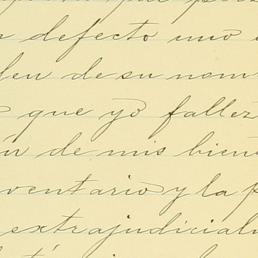 defecto uno
den de su nom
que yo fallez
de mis biene
ventario y la p
extrajudicialm